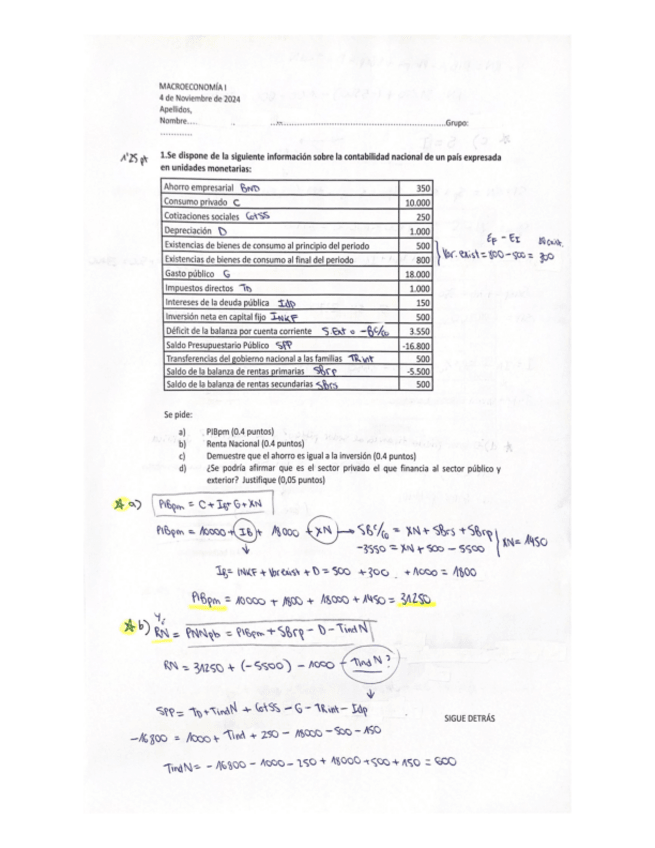 MACROECONOMÍA I
4 de Noviembre de 2024
Apellidos,
Nombre.... .. ..-.......................................................Grupo:
............
1'25 pt 1.Se dispone de la siguiente información sobre la contabilidad nacional de un país expresada
en unidades monetarias:
Ahorro empresarial BND 350
Consumo privado C 10.000
Cotizaciones sociales CotSS 250
Depreciación D 1.000
Existencias de bienes de consumo al principio del periodo 500
EF - EI
Existencias de bienes de consumo al final del periodo 800
Var. exist = 800 - 500 = 300
Gasto público G 18.000
Impuestos directos TD 1.000
Intereses de la deuda pública Idp 150
Inversión neta en capital fijo INKF 500
Déficit de la balanza por cuenta corriente S.Ext = -BC/cc 3.550
Saldo Presupuestario Público SPP -16.800
Transferencias del gobierno nacional a las familias TRint 500
Saldo de la balanza de rentas primarias SBrp -5.500
Saldo de la balanza de rentas secundarias SBrs 500
Se pide:
a) PIBpm (0.4 puntos)
b) Renta Nacional (0.4 puntos)
c) Demuestre que el ahorro es igual a la inversión (0.4 puntos)
d) ¿Se podría afirmar que es el sector privado el que financia al sector público y
exterior? Justifique (0,05 puntos)
a) PIBpm = C + Ib + G + XN
PIBpm = 10000 + IB + 18000 + XN → SBC/cc = XN + SBrs + SBrp
-3550 = XN + 500 - 5500
XN = 1450
Ib = INKF + Var exist + D = 500 + 300 + 1000 = 1800
PIBpm = 10000 + 1800 + 18000 + 1450 = 31250
b) RN = PNNpb = PIBpm + SBrp - D - TindN
RN = 31250 + (-5500) - 1000 - TindN?
SPP = TD + TindN + CotSS - G - TRint - Idp
SIGUE DETRÁS
-16800 = 1000 + Tind + 250 - 18000 - 500 - 150
TindN = -16800 - 1000 - 250 + 18000 + 500 + 150 = 600